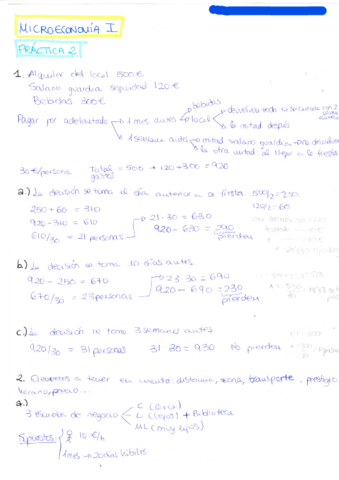 MICROECONOMÍA I
PRÁCTICA 2.
1. Alquiler del local 500€
Salario guardia seguridad 120€
Bebidas 300€
Pagar por adelantado → 1 mes antes → local → bebidas → devolviendo
la mitad después
1 semana antes → mitad salario guardia
la otra mitad al llegar a la fiesta
30€/persona Total gastos = 500 + 120 + 300 = 920
a.) La decisión se toma el día anterior a a fiesta. 500/2 = 250
120/2 = 60
250 + 60 = 310
920 - 310 = 610
610/30 = 21 personas
21 · 30 = 630
920 - 630 = 290 pierden
b.) La decisión se toma 10 días antes
920 - 250 = 670
670/30 = 23 personas
23 · 30 = 690
920 - 690 = 230 pierden
c.) La decisión se toma 3 semanas antes
920/30 = 31 personas 31 · 30 = 930 No pierden
2. Elementos a tener en cuenta distancia, zona, transporte, prestigio,
horario, precio...
a.)
3 escuelas de negocio
C (cerca)
L (lejos) + Biblioteca
ML (muy lejos)
Supuestos
10 €/h
1 mes → 20 días hábiles